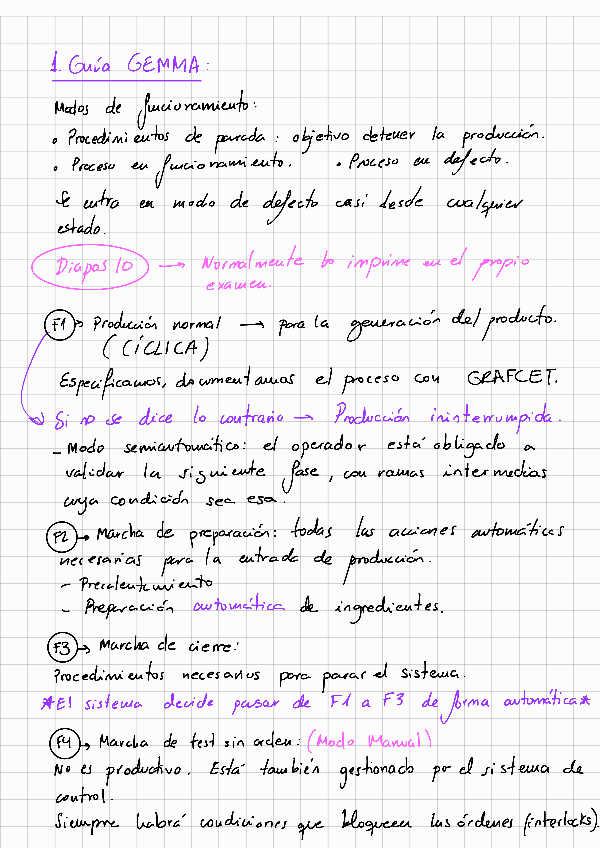 1. Guía GEMMA:
Modos de funcionamiento:
• Procedimientos de parada: objetivo detener la producción.
• Proceso en funcionamiento. • Proceso en defecto.
Se entra en modo de defecto casi desde cualquier
estado.
Diapos 10 → Normalmente lo imprime en el propio
examen.
F1 → Producción normal → para la generación del producto.
(CÍCLICA)
Especificamos, documentamos el proceso con GRAFCET.
Si no se dice lo contrario → Producción ininterrumpida.
- Modo semiautomático: el operador está obligado a
validar la siguiente fase, con ramas intermedias
cuya condición sea esa.
F2 → Marcha de preparación: todas las acciones automáticas
necesarias para la entrada de producción.
- Precalentamiento
- Preparación automática de ingredientes.
F3 → Marcha de cierre:
Procedimientos necesarios para parar el sistema.
*El sistema decide pasar de F1 a F3 de forma automática*
F4 → Marcha de test sin orden: (Modo Manual)
No es productivo. Está también gestionado por el sistema de
control.
Siempre habrá condiciones que bloqueen las órdenes (interlocks).